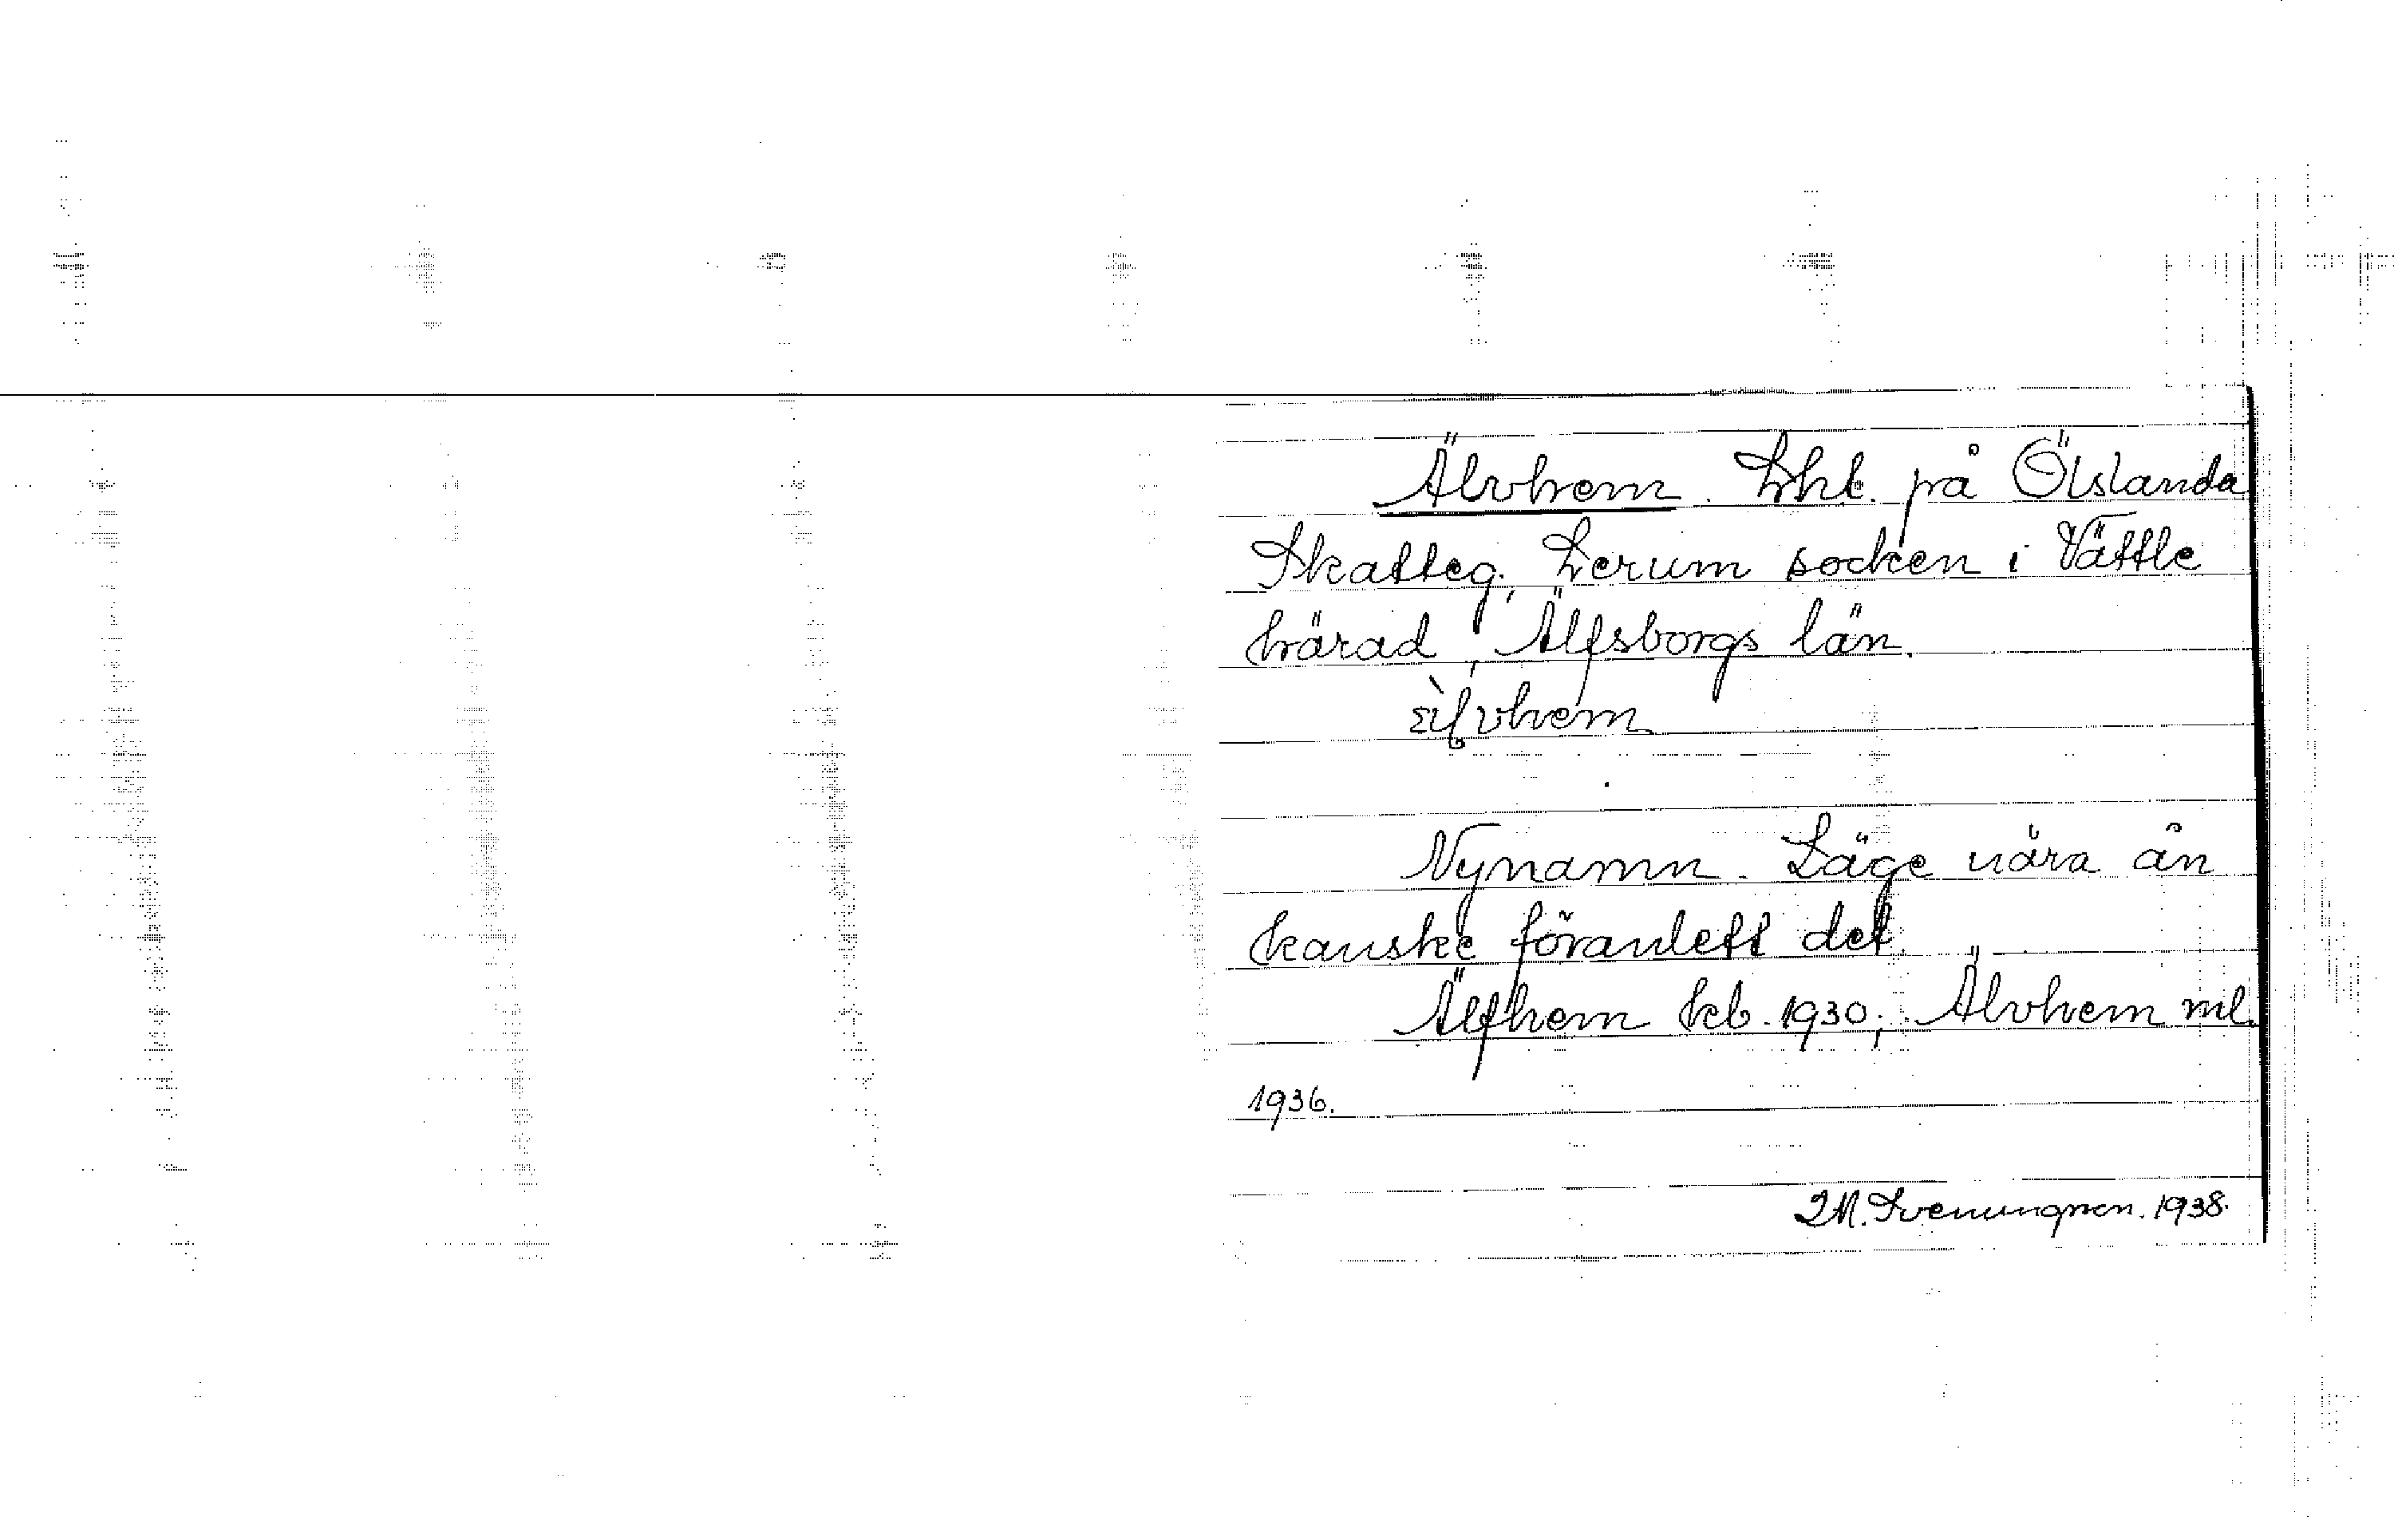 Älvhem. Lht. på Ölslanda
Skatteg., Lerum socken i Vättle
härad, Älfsborgs län.
Nynamn. Läge nära ån
kanske föranlett det.
Älfhem kb. 1930; Älvhem ml.
1936.
J.M. Svenungson. 1938.